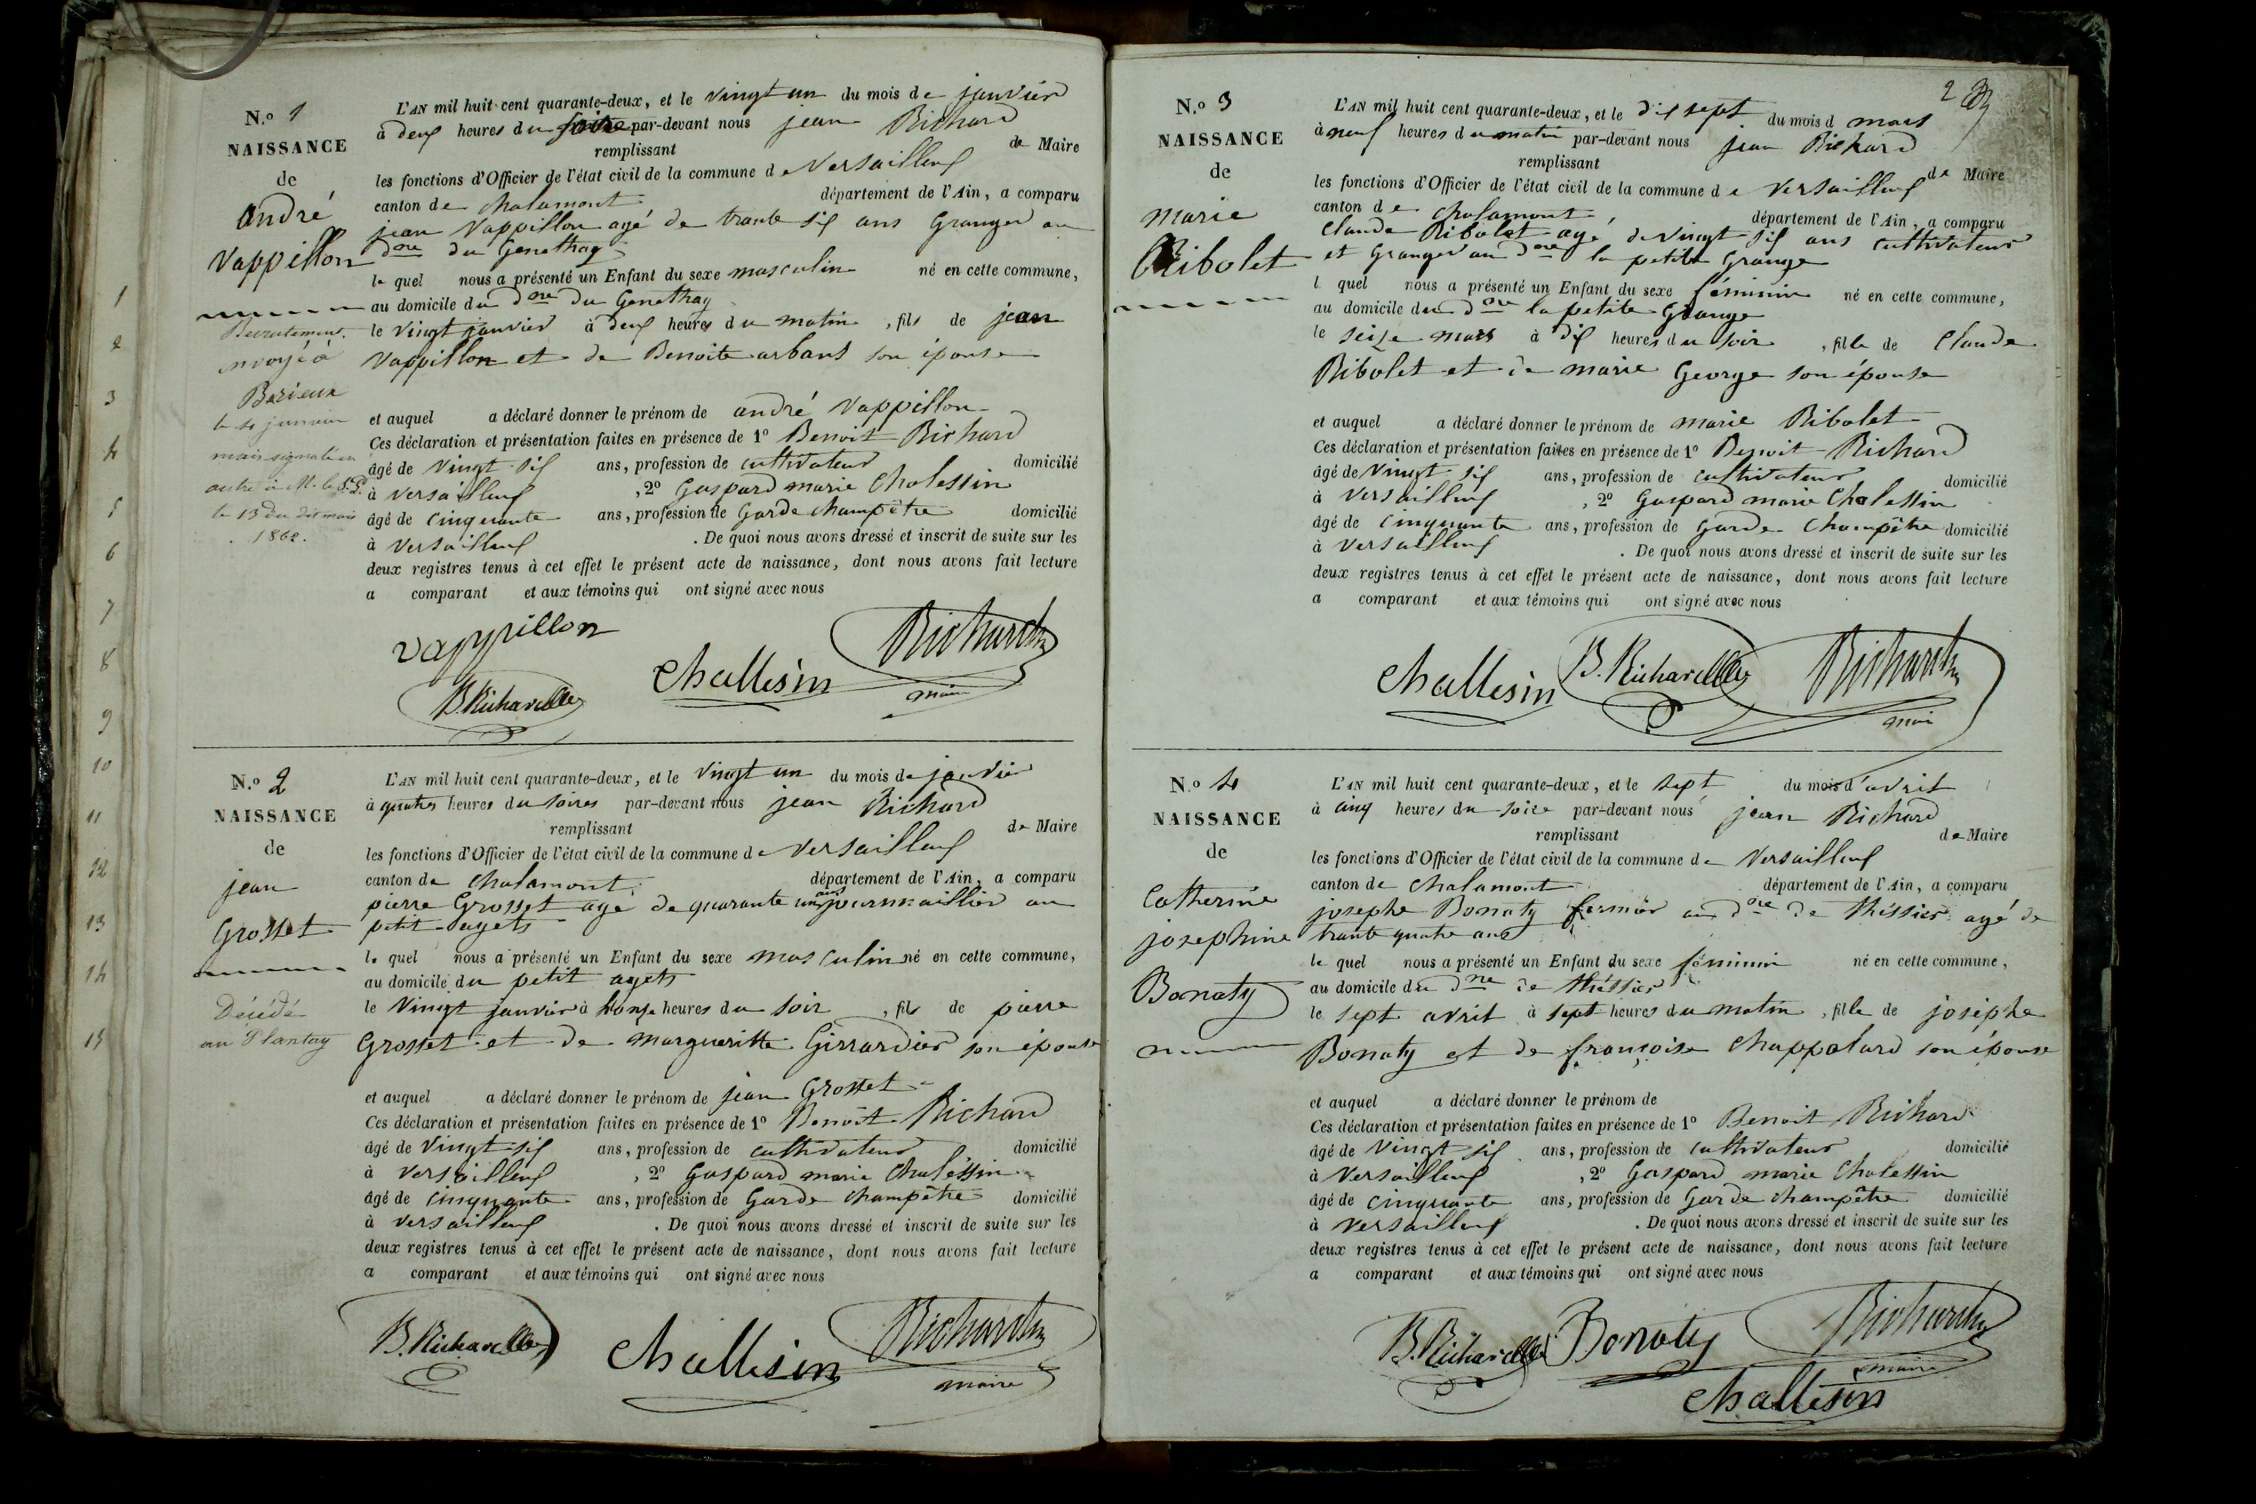 N.o 1
NAISSANCE
de
andré
Vappillon
Recrutement.
envoyé à
le 21 janvier
1862.
L'AN mil huit cent quarante-deux, et le vingt un du mois de janvier
à deux heures du soire par-devant nous jean Richard
remplissant de Maire
les fonctions d'Officier de l'état civil de la commune de Versailleux
canton de chalamont département de l'Ain, a comparu
jean Vappillon agé de trante six ans Granger au
dne du Genethay
le quel nous a présenté un Enfant du sexe masculin né en cette commune,
au domicile du dne du Genethay
le vingt janvier à deux heures du matin, fils de jean
Vappillon et de Benoite arbant son épouse
et auquel a déclaré donner le prénom de andré Vappillon
Ces déclaration et présentation faites en présence de 1o Benoit Richard
âgé de vingt six ans, profession de cultivateur domicilié
à versailleux, 2o Gaspard marie Chalessin
âgé de cinquante ans, profession de Garde champêtre domicilié
à versailleux. De quoi nous avons dressé et inscrit de suite sur les
deux registres tenus à cet effet le présent acte de naissance, dont nous avons fait lecture
a comparant et aux témoins qui ont signé avec nous
vappillon
B. Richard
challesin
Richard
maire
1
2
3
4
5
6
7
8
9
10
11
12
13
14
15
N.o 2
NAISSANCE
de
jean
Grosset
Décédé
au Plantay
L'AN mil huit cent quarante-deux, et le vingt un du mois de janvier
à quatres heures du soires par-devant nous jean Richard
remplissant de Maire
les fonctions d'Officier de l'état civil de la commune de Versailleux
canton de chalamont département de l'Ain, a comparu
pierre Grosset agé de quarante cinq journnaillier au
petit agets
le quel nous a présenté un Enfant du sexe masculin né en cette commune,
au domicile du petit agets
le vingt janvier à honze heures du soir, fils de pierre
Grosset et de margueritte Girrardier son épouse
et auquel a déclaré donner le prénom de jean Grosset
Ces déclaration et présentation faites en présence de 1o Benoit Richard
âgé de vingt six ans, profession de cultivateur domicilié
à versailleux, 2o Gaspard marie Chalessin
âgé de cinquante ans, profession de Garde champêtre domicilié
à versailleux. De quoi nous avons dressé et inscrit de suite sur les
deux registres tenus à cet effet le présent acte de naissance, dont nous avons fait lecture
a comparant et aux témoins qui ont signé avec nous
B. Richard
challesin
Richard
maire
2
N.o 3
NAISSANCE
de
marie
Ribolet
L'AN mil huit cent quarante-deux, et le dix sept du mois d mars
à neuf heures du matin par-devant nous jean Richard
remplissant de Maire
les fonctions d'Officier de l'état civil de la commune de Versailleux
canton de chalamont, département de l'Ain, a comparu
Claude Ribolet agé de vingt six ans cultivateur
et Granger au dne la petite Grange
l quel nous a présenté un Enfant du sexe féminin né en cette commune,
au domicile du dne la petite Grange
le seize mars à dix heures du soir, fille de Claude
Ribolet et de marie George son épouse
et auquel a déclaré donner le prénom de marie Ribolet
Ces déclaration et présentation faites en présence de 1o Benoit Richard
âgé de vingt six ans, profession de cultivateur domicilié
à versailleux, 2o Gaspard marie Chalessin
âgé de cinquante ans, profession de Garde Champêtre domicilié
à versailleux. De quoi nous avons dressé et inscrit de suite sur les
deux registres tenus à cet effet le présent acte de naissance, dont nous avons fait lecture
a comparant et aux témoins qui ont signé avec nous
challesin
B. Richard
Richard
maire
N.o 4
NAISSANCE
de
Catherine
josephine
Bonaty
L'AN mil huit cent quarante-deux, et le sept du mois d'avril
à cinq heures du soire par-devant nous jean Richard
remplissant de Maire
les fonctions d'Officier de l'état civil de la commune de Versailleux
canton de chalamont département de l'Ain, a comparu
josephe Bonaty fermier au dne de théssier agé de
trante quatre ans
le quel nous a présenté un Enfant du sexe féminin né en cette commune,
au domicile du dne de théssier
le sept avril à sept heures du matin, fille de joséphe
Bonaty et de françoise Chappolard son épouse
et auquel a déclaré donner le prénom de
Ces déclaration et présentation faites en présence de 1o Benoit Richard
âgé de vingt six ans, profession de cultivateur domicilié
à versailleux, 2o Gaspard marie Chalessin
âgé de cinquante ans, profession de Garde champêtre domicilié
à versailleux. De quoi nous avons dressé et inscrit de suite sur les
deux registres tenus à cet effet le présent acte de naissance, dont nous avons fait lecture
a comparant et aux témoins qui ont signé avec nous
B. Richard
Bonaty
Richard
maire
challesin